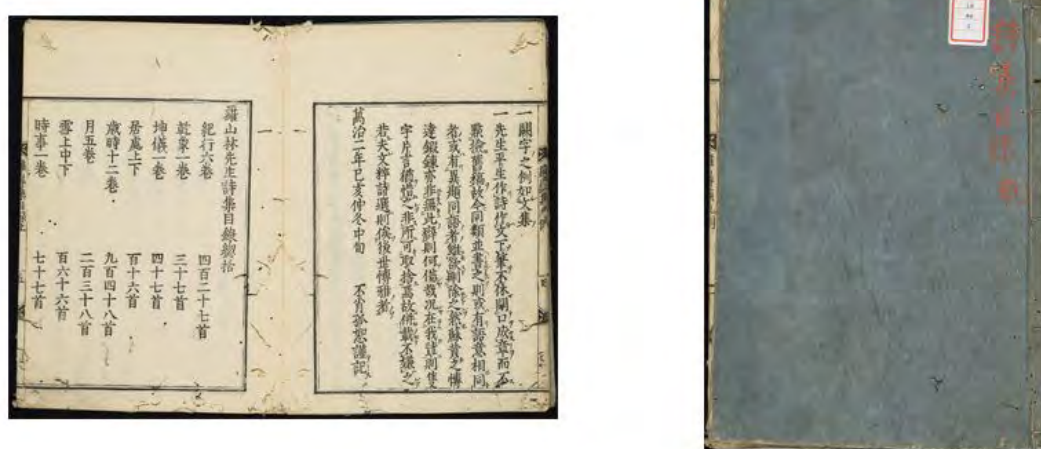 一闕字之例如文集
一先生平生作詩作文下筆不休開口成章而不
點撿舊稿故今同類並書之則或有語意相同
者或有異題同語者雖欲刪除之然蘇黃之博
達鍛鍊亦非無此癖則何傷哉況在我詩則隻
字片言
若夫文粹詩選則俟後世博雅者
萬治二年己亥仲冬中旬 不肖 恕謹記
羅山林先生詩集目錄
紀行六卷 四百二十七首
乾象一卷 三十七首
坤儀一卷 四十七首
居處上下 百十六首
歲時十二卷 九百四十八首
月五卷 二百三十八首
雪上中下 百六十六首
時事一卷 七十七首